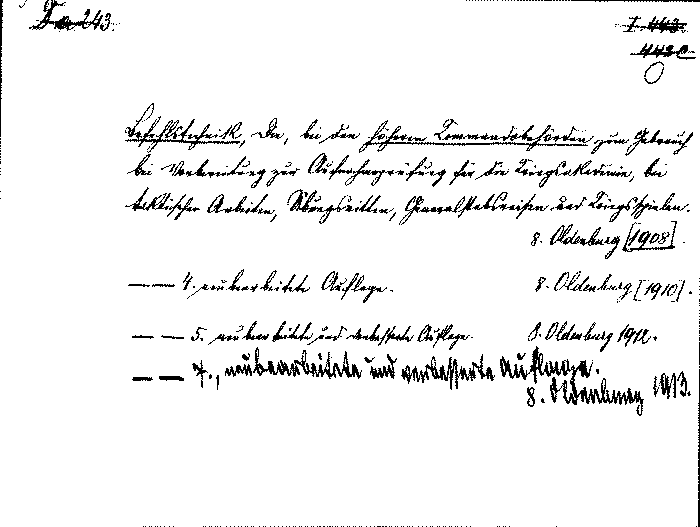 Da 243.
I 443.
442c
Befehlstechnik, Die, bei den höheren Kommandobehörden zum Gebrauch
bei Vorbereitung zur Aufnahmeprüfung für die Kriegsakademie, bei
taktischen Arbeiten, Übungsritten, Generalstabsreisen und Kriegsspielen.
8. Oldenburg [1908].
— — 4. neubearbeitete Auflage. 8. Oldenburg [1910].
— — 5. neubearbeitete und verbesserte Auflage. 8. Oldenburg 1912.
— — 7., neubearbeitete und verbesserte Auflage.
8. Oldenburg 1913.